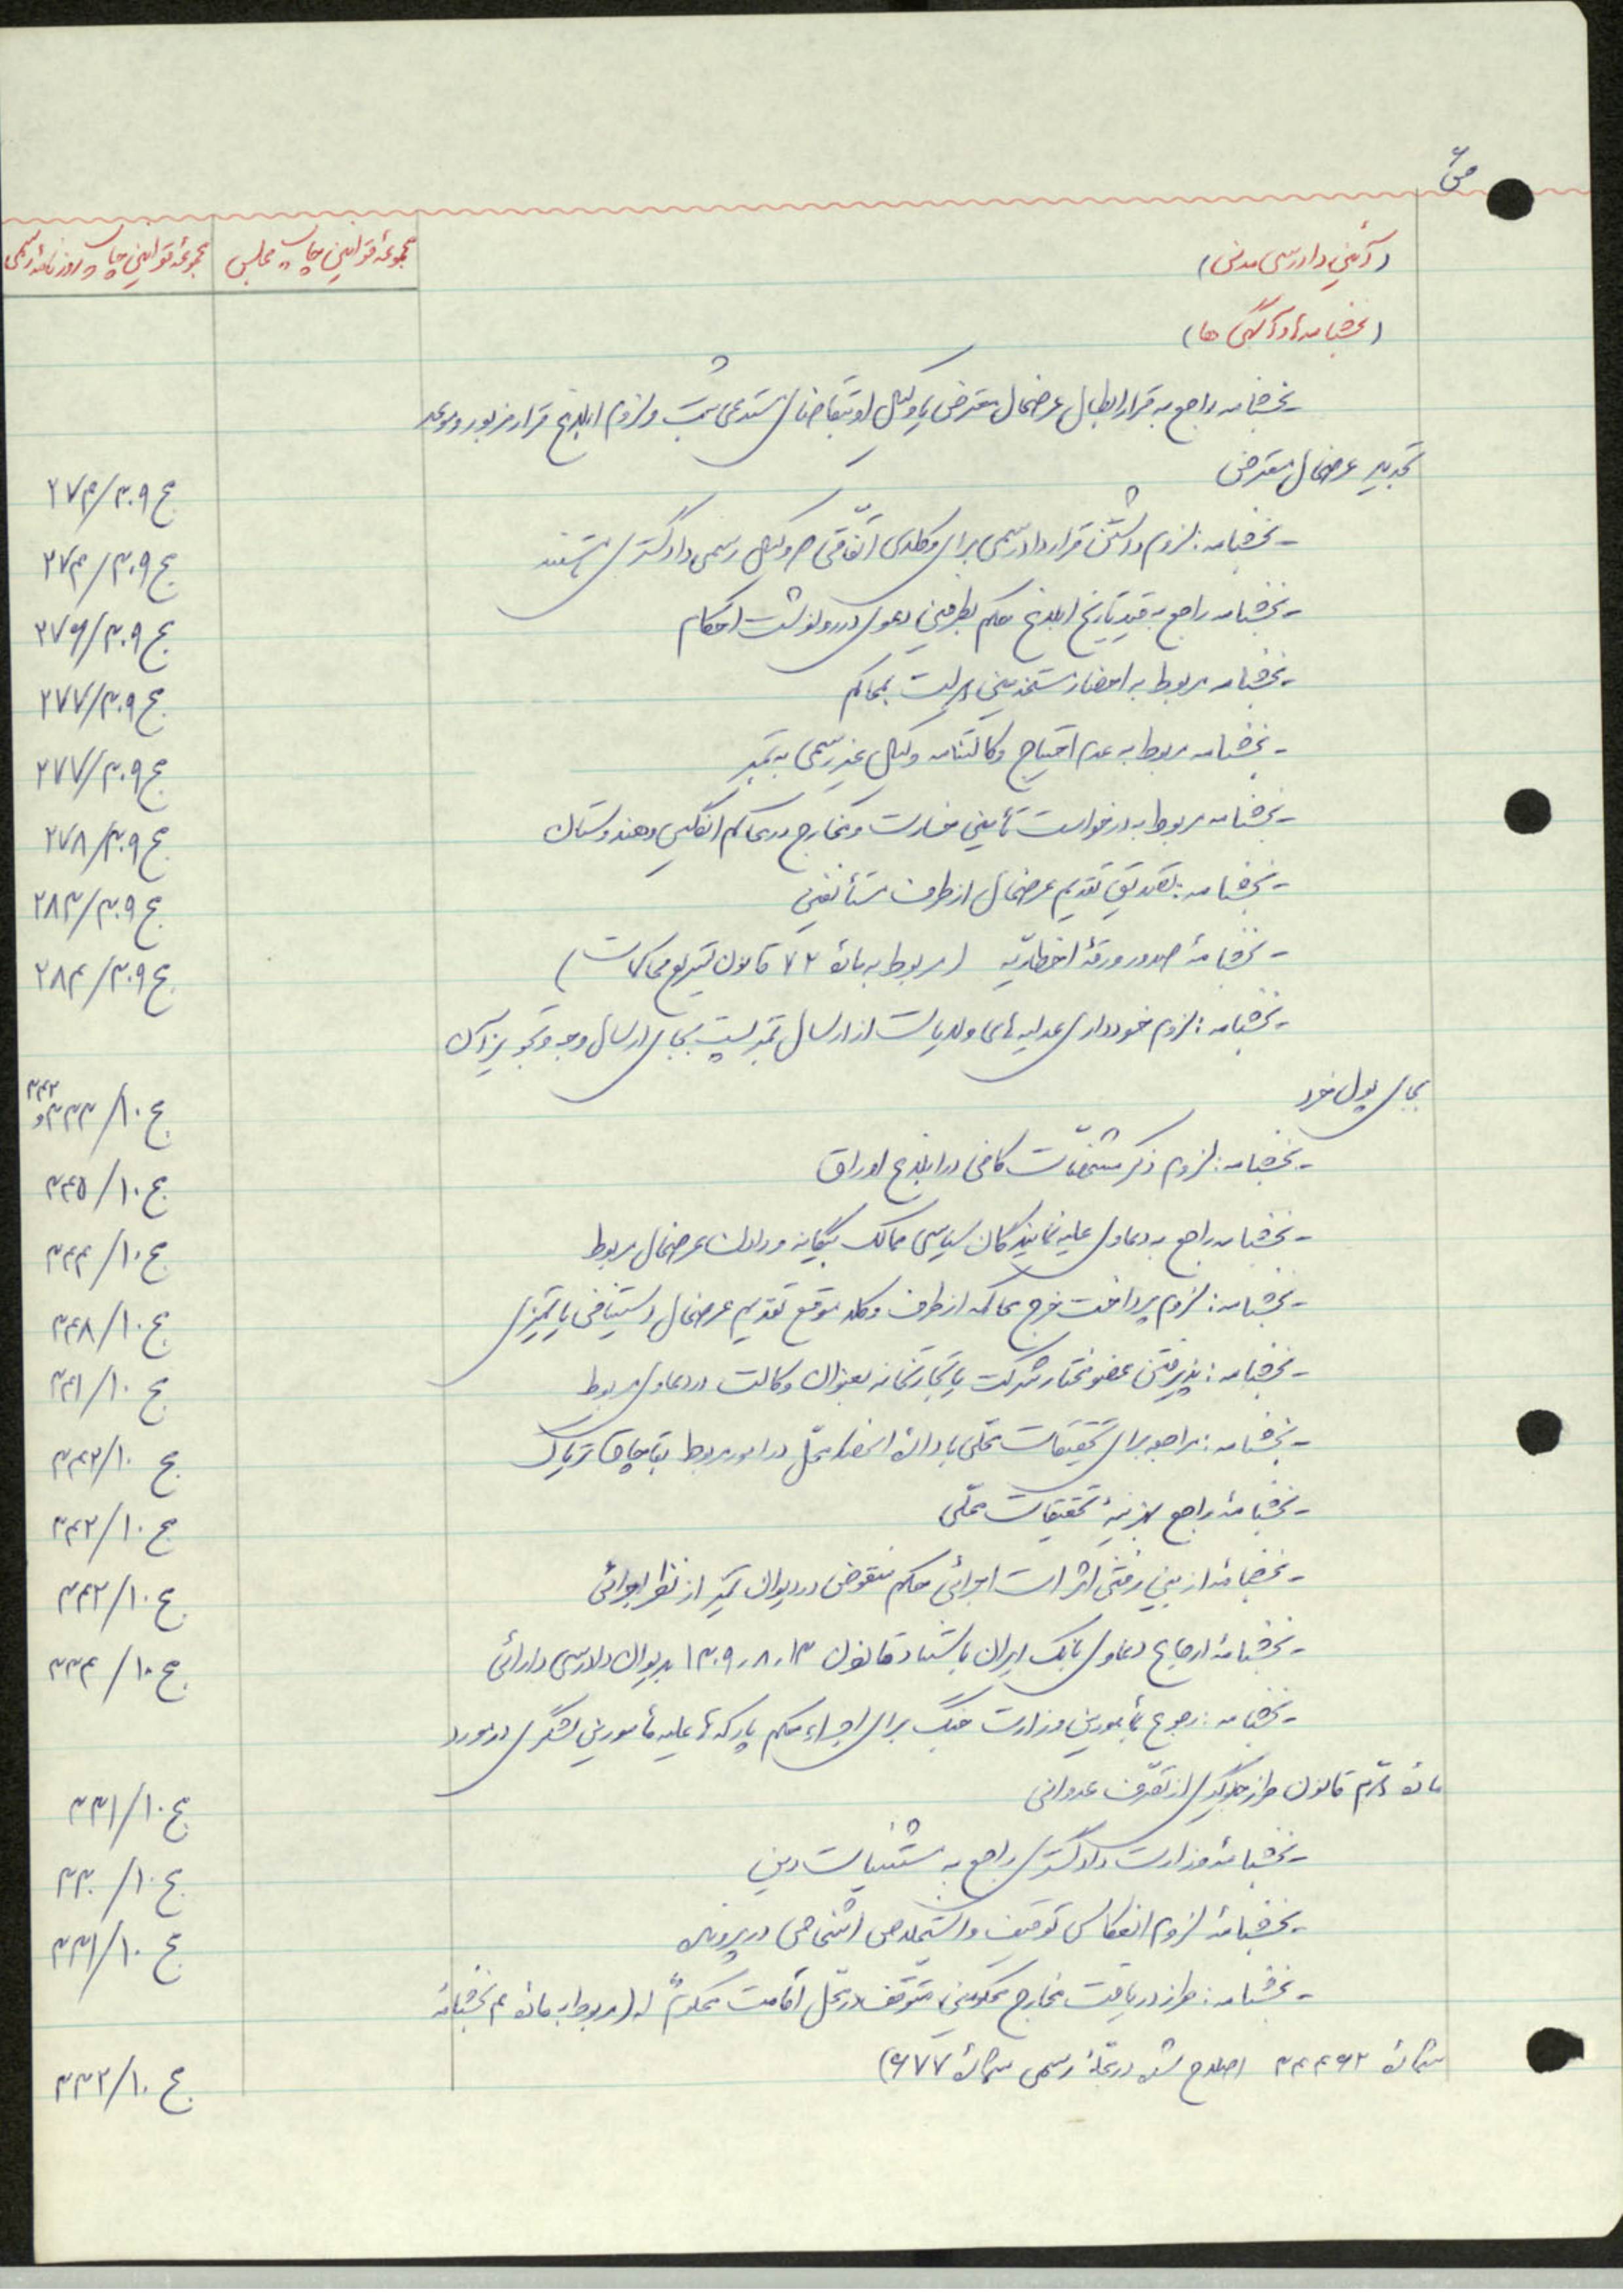 ص۶
(آئین دادرسی مدنی)
مجموعهٔ قوانین چاپ مجلس
مجموعهٔ قوانین چاپ روزنامهٔ رسمی
(بخشنامه‌ها و آگهی ها)
- بخشنامه راجع به قرار ابطال عرضحال معترض یا وکیل او بتقاضای مستدعی ثبت و لزوم ابلاغ قرار مزبور و موعد
تجدید عرضحال معترض
ج ۳۰۹/۲۷۴
- بخشنامه: لزوم داشتن قرارداد رسمی برای وکلای اتفاقی که وکیل رسمی دادگستری نیستند
ج ۳۰۹/۲۷۴
- بخشنامه راجع به قید تاریخ ابلاغ حکم بطرفین دعوی در رونوشت احکام
ج ۳۰۹/۲۷۶
- بخشنامه مربوط به احضار مستخدمین دولت بمحاکم
ج ۳۰۹/۲۷۷
- بخشنامه مربوط به عدم احتیاج وکالتنامه وکیل غیر رسمی به تمبر
ج ۳۰۹/۲۷۷
- بخشنامه مربوط به درخواست تأمین خسارت و مخارج در محاکم انگلیس و هندوستان
ج ۳۰۹/۲۷۸
- بخشنامه: تصدیق تقدیم عرضحال از طرف مستأنفین
ج ۳۰۹/۲۸۳
- بخشنامهٔ صدور ورقهٔ اخطاریّه (مربوط به مادهٔ ۷۲ قانون تسریع محاکمات)
ج ۳۰۹/۲۸۴
- بخشنامه: لزوم خودداری عدلیه های ولایات از ارسال تمبر پست بجای ارسال وجه و تجویز آن
بجای پول خرد
ج ۱۰/۳۳۳ و ۳۴۲
- بخشنامه: لزوم ذکر مشخصّات کافی در ابلاغ اوراق
ج ۱۰/۳۴۵
- بخشنامه راجع به دعاوی علیه نمایندگان سیاسی ممالک بیگانه و دادن عرضحال مربوط
ج ۱۰/۳۴۴
- بخشنامه: لزوم پرداخت خرج محاکمه از طرف وکلا موقع تقدیم عرضحال استینافی یا تمیزی
ج ۱۰/۳۴۸
- بخشنامه: پذیرفتن عضو مختار شرکت یا تجارتخانه بعنوان وکالت در دعاوی مربوط
ج ۱۰/۳۴۱
- بخشنامه: مراجعه برای تحقیقات محلّی با ادارهٔ انحصار محلّ در امور مربوط بقاچاق تریاک
ج ۱۰/۳۴۲
- بخشنامهٔ راجع بهزینهٔ تحقیقات محلّی
ج ۱۰/۳۴۲
- بخشنامهٔ از بین رفتن اثرات اجرائی حکم منقوض در دیوان تمیز از نظر اجرائی
ج ۱۰/۳۴۲
- بخشنامهٔ ارجاع دعاوی بانک ایران باستناد قانون ۱۳۰۹،۸،۱۳ بدیوان دادرسی دارائی
ج ۱۰/۳۳۴
- بخشنامه: رجوع بمأمورین وزارت جنگ برای اجراء حکم پارکه‌ها علیه مأمورین لشگری در مورد
مادهٔ قانون طرز جلوگیری از تصرّف عدوانی
ج ۱۰/۳۳۱
- بخشنامهٔ وزارت دادگستری راجع به مستثنیات دین
ج ۱۰/۳۳۰
- بخشنامهٔ لزوم انعکاس توقیف و استخلاص اشخاص در پرونده
ج ۱۰/۳۳۱
- بخشنامه: طرز دریافت مخارج محکومین متوقف در محل اقامت محکومٌ له (مربوط به مادهٔ ۴ بخشنامهٔ
شمارهٔ ۳۴۴۶۲ اصلاح شده در مجلّهٔ رسمی شمارهٔ ۶۷۷)
ج ۱۰/۳۳۲